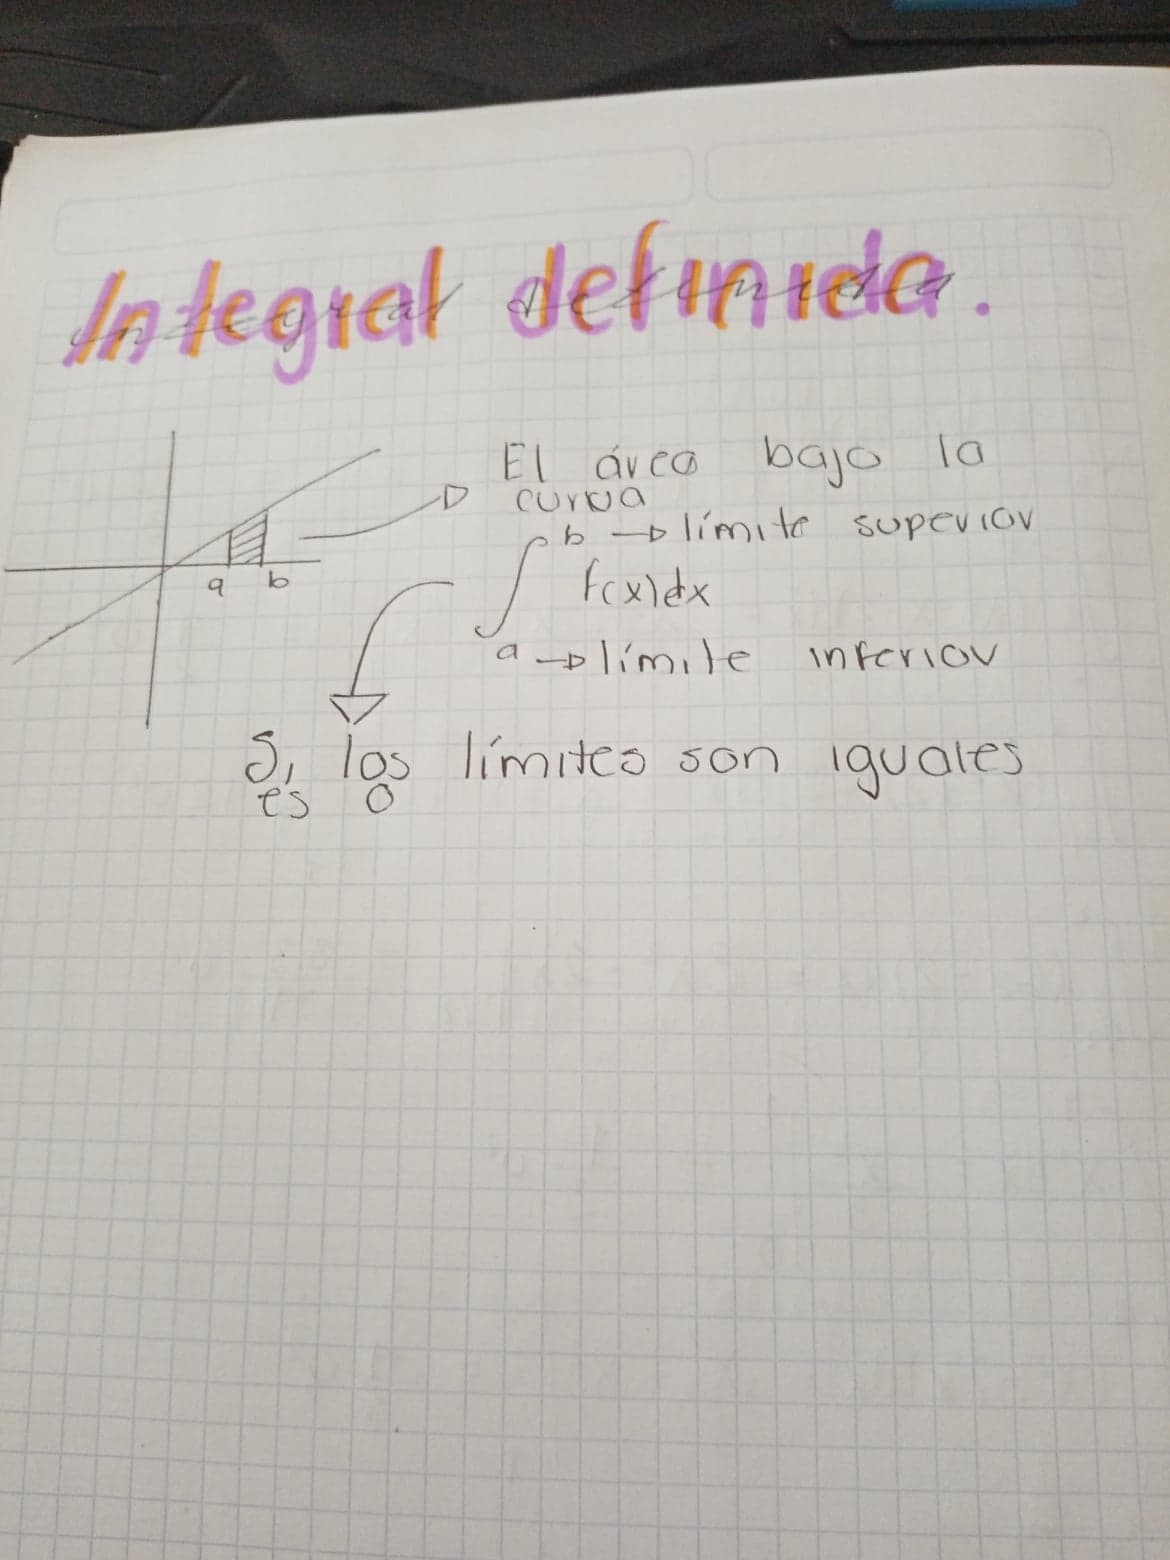 Integral definida.
El área bajo la
curva
b → límite superior
∫ f(x)dx
a → límite inferior
a b
Si los límites son iguales
es 0